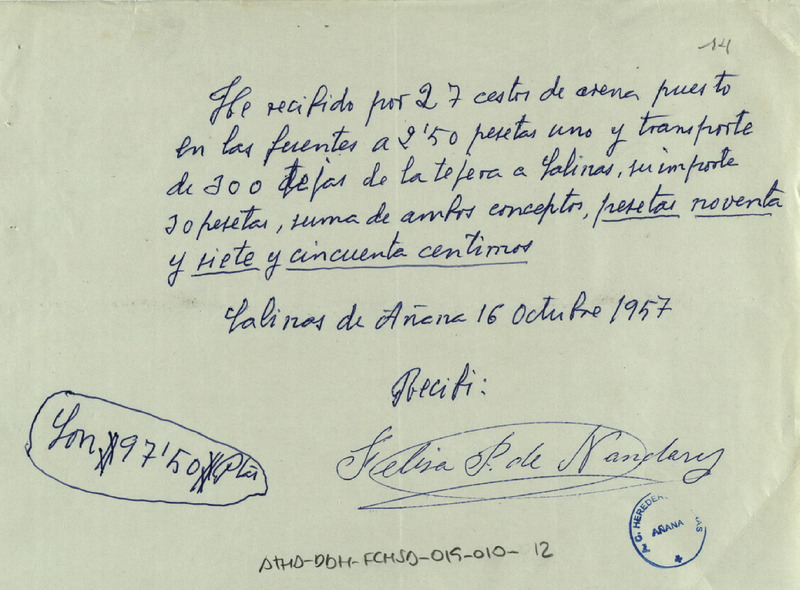 14
He recibido por 27 cestos de arena puesto
en las fuentes a 2'50 pesetas uno y transporte
de 300 tejas de la tejera a Salinas, su importe
30 pesetas, suma de ambos conceptos, pesetas noventa
y siete y cincuenta centimos
Salinas de Añana 16 Octubre 1957
Recibi:
Son 97'50 Pts
Felisa P. de Nanclares
A. C. HEREDER
AÑANA
ATHA-DDH-FCHSA-019-010- 12